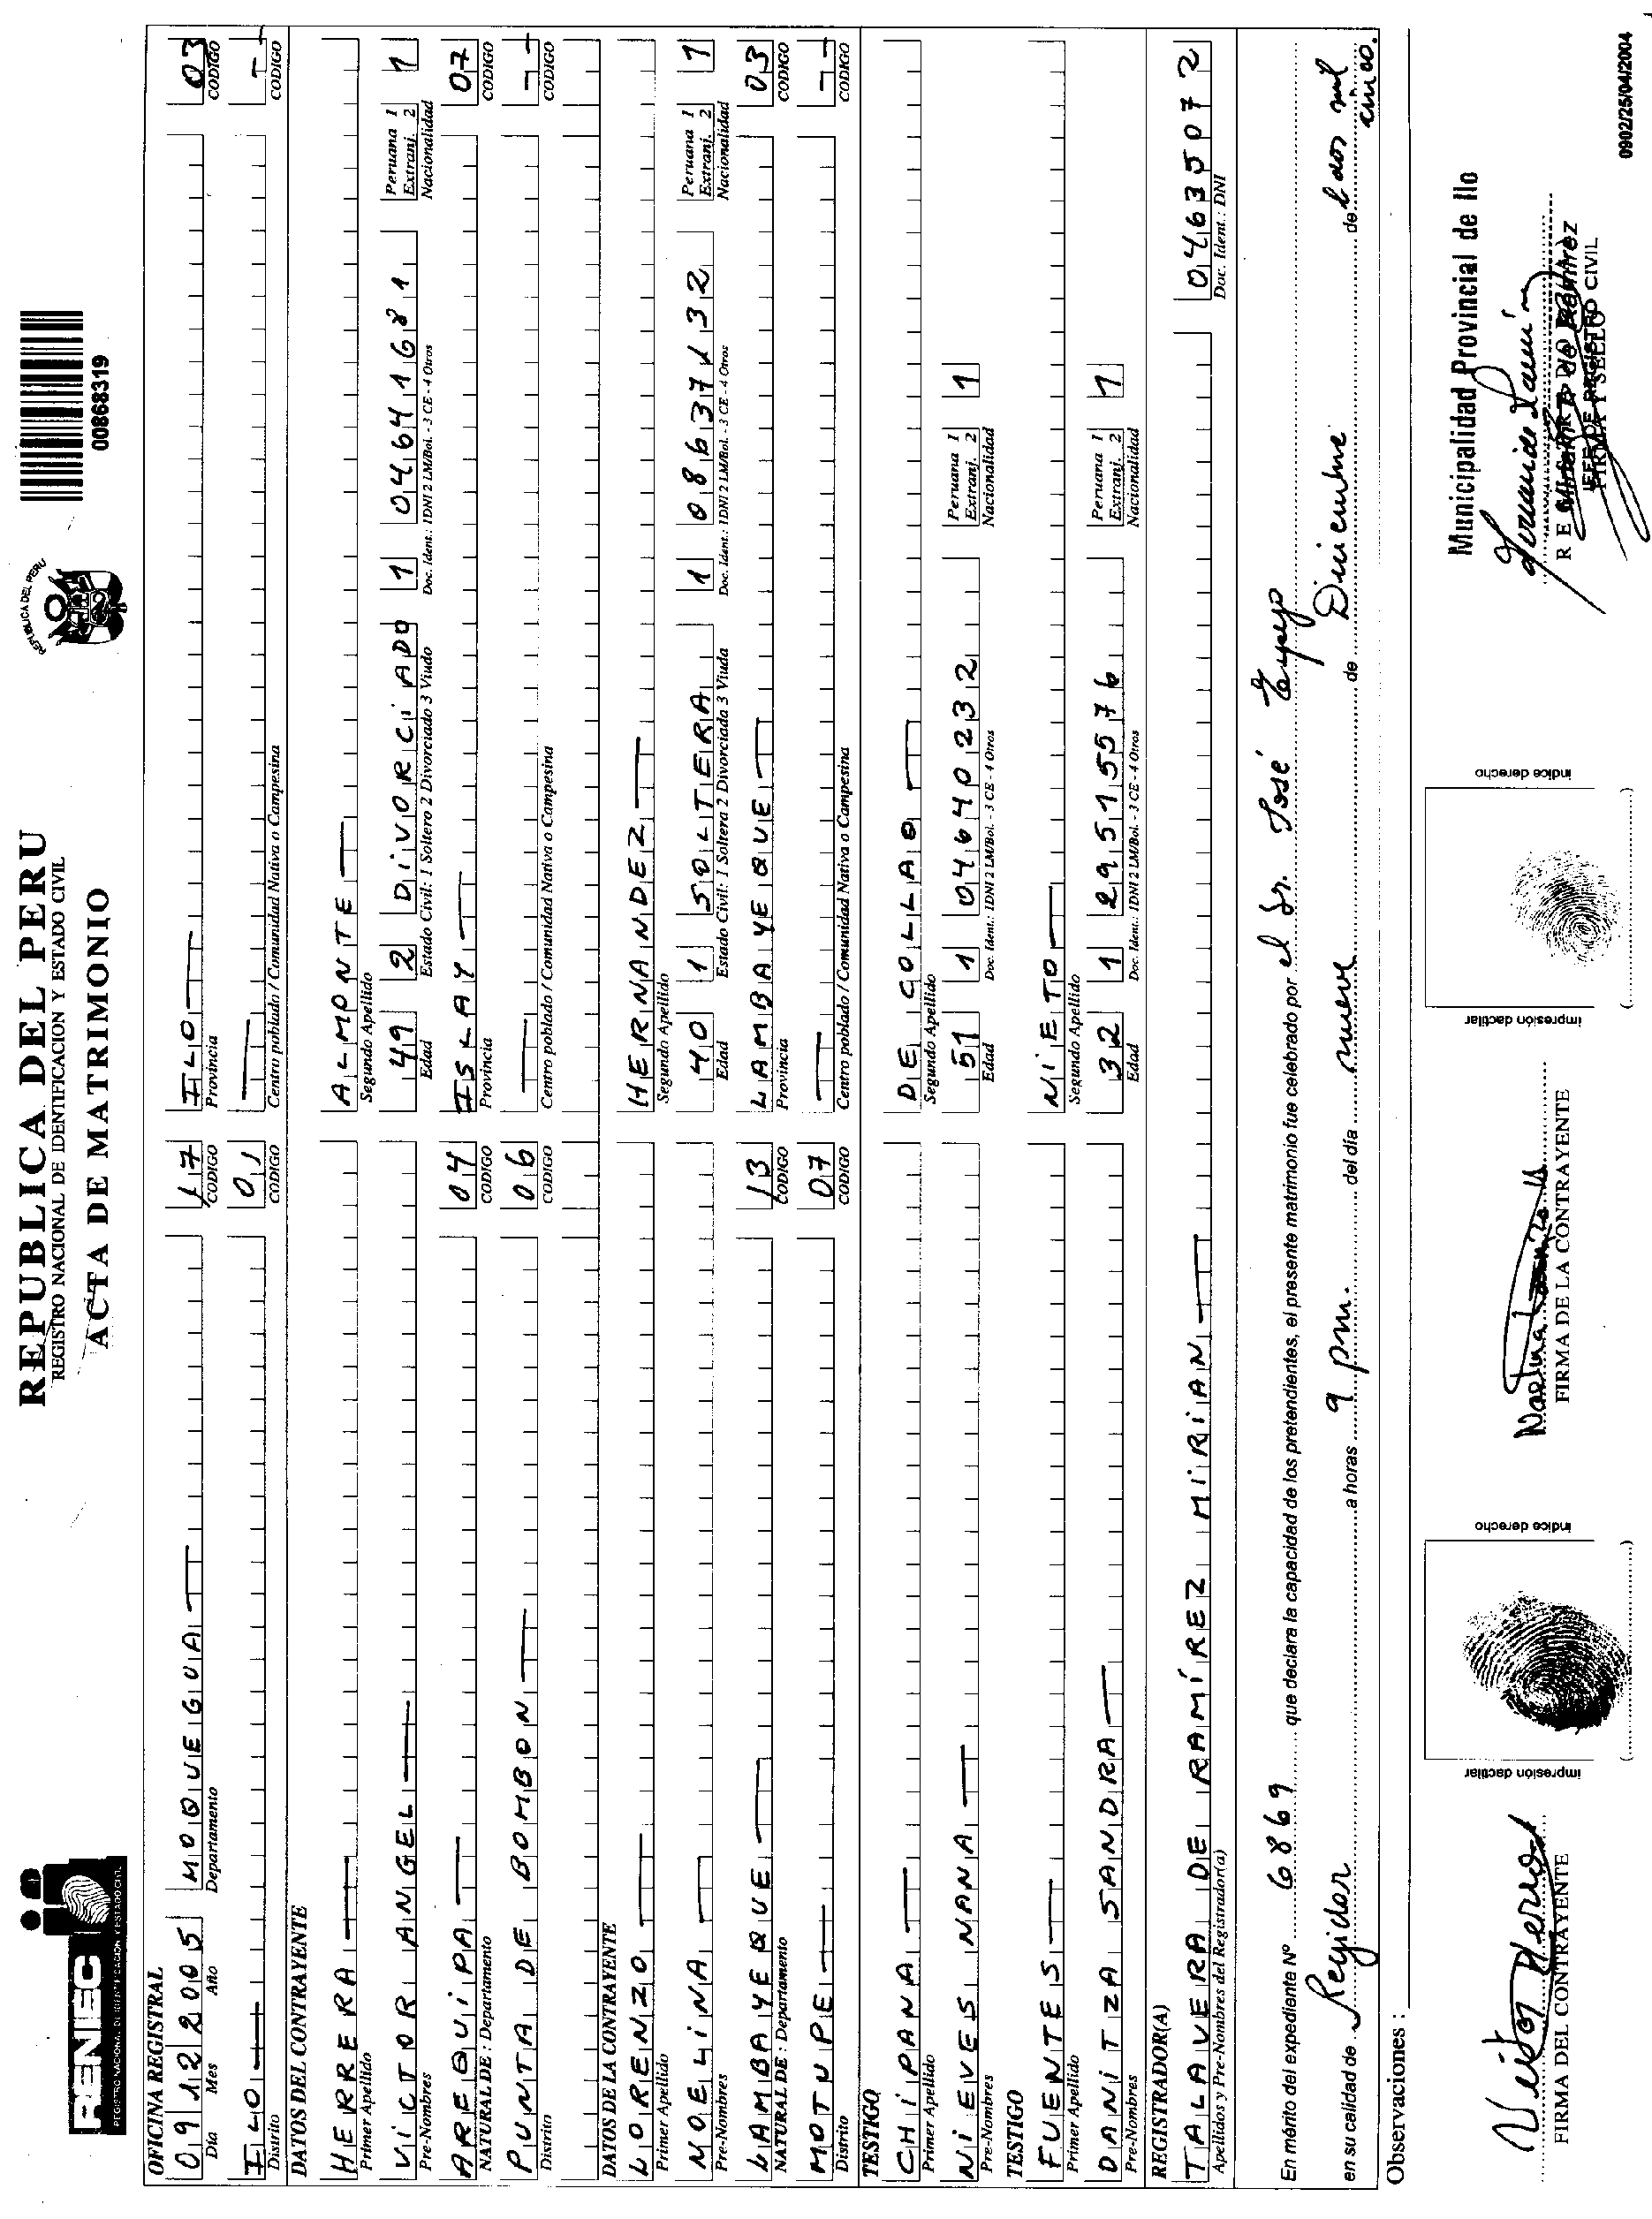 RENIEC
REGISTRO NACIONAL DE IDENTIFICACION Y ESTADO CIVIL
REPUBLICA DEL PERU
REGISTRO NACIONAL DE IDENTIFICACION Y ESTADO CIVIL
ACTA DE MATRIMONIO
REPUBLICA DEL PERU
00868319
OFICINA REGISTRAL
09 12 2005 MOQUEGUA 17 ILO 03
Día Mes Año Departamento CODIGO Provincia CODIGO
ILO 01
Distrito CODIGO Centro poblado / Comunidad Nativa o Campesina CODIGO
DATOS DEL CONTRAYENTE
HERRERA ALMONTE
Primer Apellido Segundo Apellido
VICTOR ANGEL 49 2 DIVORCIADO 1 04641681 Peruana 1 Extranj. 2 1
Pre-Nombres Edad Estado Civil: 1 Soltero 2 Divorciado 3 Viudo Doc. Ident.: 1DNI 2 LM/Bol. - 3 CE - 4 Otros Nacionalidad
AREQUIPA 04 ISLAY 07
NATURAL DE : Departamento CODIGO Provincia CODIGO
PUNTA DE BOMBON 06
Distrito CODIGO Centro poblado / Comunidad Nativa o Campesina CODIGO
DATOS DE LA CONTRAYENTE
LORENZO HERNANDEZ
Primer Apellido Segundo Apellido
NOELINA 40 1 SOLTERA 1 08637132 Peruana 1 Extranj. 2 1
Pre-Nombres Edad Estado Civil: 1 Soltera 2 Divorciada 3 Viuda Doc. Ident.: 1DNI 2 LM/Bol. - 3 CE - 4 Otros Nacionalidad
LAMBAYEQUE 13 LAMBAYEQUE 03
NATURAL DE : Departamento CODIGO Provincia CODIGO
MOTUPE 07
Distrito CODIGO Centro poblado / Comunidad Nativa o Campesina CODIGO
TESTIGO
CHIPANA DE COLLAO
Primer Apellido Segundo Apellido
NIEVES NANA 51 1 04640232 Peruana 1 Extranj. 2 1
Pre-Nombres Edad Doc. Ident.: 1DNI 2 LM/Bol. - 3 CE - 4 Otros Nacionalidad
TESTIGO
FUENTES NIETO
Primer Apellido Segundo Apellido
DANITZA SANDRA 32 1 29515576 Peruana 1 Extranj. 2 1
Pre-Nombres Edad Doc. Ident.: 1DNI 2 LM/Bol. - 3 CE - 4 Otros Nacionalidad
REGISTRADOR(A)
TALAVERA DE RAMÍREZ MIRIAN 04635072
Apellidos y Pre-Nombres del Registrador(a) Doc. Ident.: DNI
En mérito del expediente Nº 6869 que declara la capacidad de los pretendientes, el presente matrimonio fue celebrado por el Sr. José
en su calidad de Regidor a horas 9 pm. del día nueve de Diciembre de dos mil cinco.
Observaciones :
Municipalidad Provincial de Ilo
impresión dactilar índice derecho
impresión dactilar índice derecho
FIRMA DEL CONTRAYENTE
FIRMA DE LA CONTRAYENTE
JEFE DE REGISTRO CIVIL
FIRMA Y SELLO
0902/25/04/2004